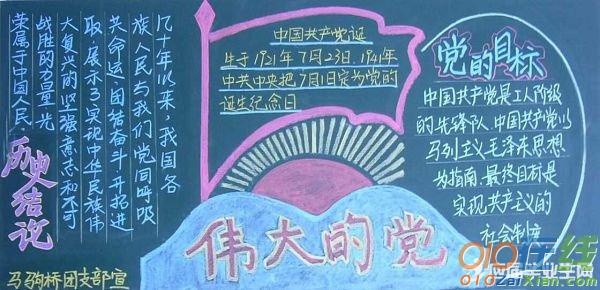 历史结论
几十年以来，我国各
族人民与我们党同呼吸
共命运，团结奋斗，开拓进
取，展示了实现中华民族伟
大复兴的坚强意志和不可
战胜的力量。光
荣属于中国人民。
中国共产党诞
生于1921年7月23日.1941年
中共中央把7月1日定为党的
诞生纪念日
党的目标
中国共产党是工人阶级
的先锋队.中国共产党以
马列主义毛泽东思想
为指南.最终目标是
实现共产主义的
社会制度
伟大的党
马驹桥团支部宣
010在线
010zaixian.com